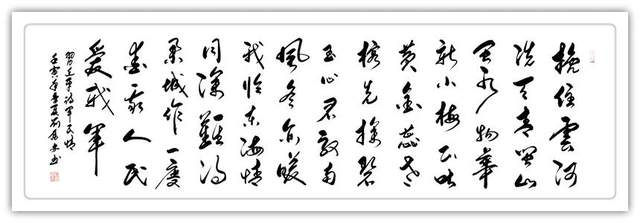 挽住雲河
洗天青閩山
閩水物華
新小梅正吐
黄金蕊老
榕先掬碧
玉心君馭南
風冬亦暖
我临东海情
同深難得
举城作一慶
愛我人民
愛我軍
習近平诗軍民情
壬寅年季夏書